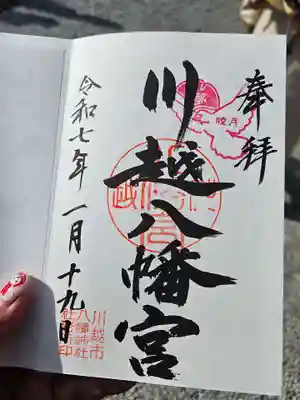 奉拝
睦月
川越八幡宮
令和七年一月十九日
川越市
八幡神社